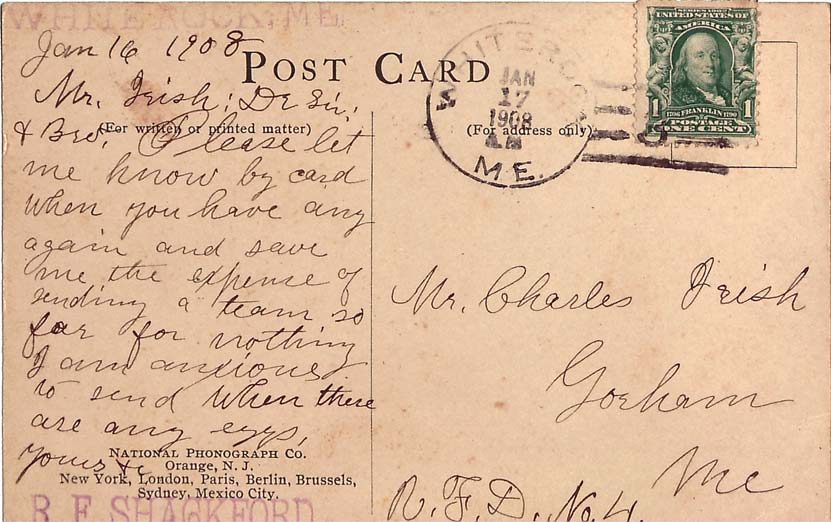 WHITE ROCK, ME
Jan 16 1908
POST CARD
Mr. Irish; Dr Sir;
& Bro. Please let
(For written or printed matter)
me know by card
when you have any
again and save
me the expense of
sending a team so
far for nothing
I am anxious
to send when there
are any eggs,
yours &c
NATIONAL PHONOGRAPH CO.
Orange, N. J.
New York, London, Paris, Berlin, Brussels,
Sydney, Mexico City.
R F SHACKFORD
WHITE ROCK
JAN
17
1908
AM
M.E.
(For address only)
SERIES 1902
UNITED STATES OF
AMERICA
1706 FRANKLIN 1790
1 1
POSTAGE
ONE CENT
Mr. Charles Irish
Gorham
Me
R.F.D. No. 4.